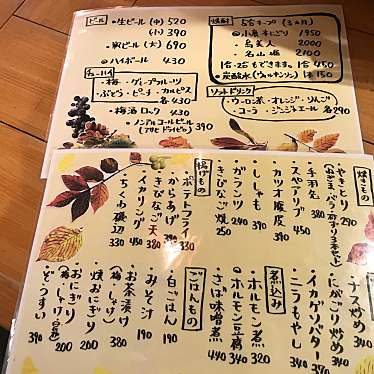 ビール
・生ビール (中) 520
(小) 390
・瓶ビール (大) 690
◎ハイボール 430
チューハイ
・梅・グレープフルーツ
ぶどう・ピーチ・カルピス
各430
・梅酒ロック 430
・ノンアルコールビール 390
(アサヒドライゼロ)
焼酎
1950
・烏美人 2000
・名山姫 2100
1合・2合もできます。 1合 450
・炭酸水 (ウィルキンソン) 150
ソフトドリンク
・ウーロン茶・オレンジ・りんご
・コーラ・ジンジャエール 各290
焼きもの
・やきとり 290
・手羽先 380
・スペアリブ 450
・カツオ腹皮 390
・ししゃも 240
・ガランツ 290
・きびなご焼 250
揚げもの
・ポテトフライ 330
・からあげ 390
・きびなご天 380
・イカリング 450
・ちくわ磯辺 330
・ナス炒め 340
・にがごり炒め
・イカゲソバター 390
・ニラもやし 340
煮込み
・ホルモン煮 320
◎ホルモン豆腐 340
・さば味噌煮 430
ごはんもの
・白ごはん 190
・みそ汁 190
・お茶漬け 380
(梅・しゃけ)
・焼おにぎり 200
・おにぎり 200
・ぞうすい 390